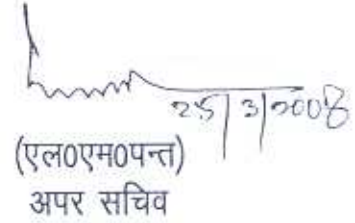 25/3/2008
(एल0एम0पन्त)
अपर सचिव